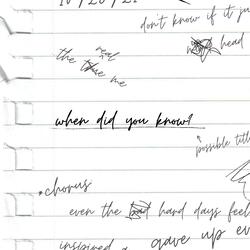 10/20/21
don't know if it ju
head
real
the me
when did you know?
possible titl
• chorus
even the hard days feel
inspired
gave up ev